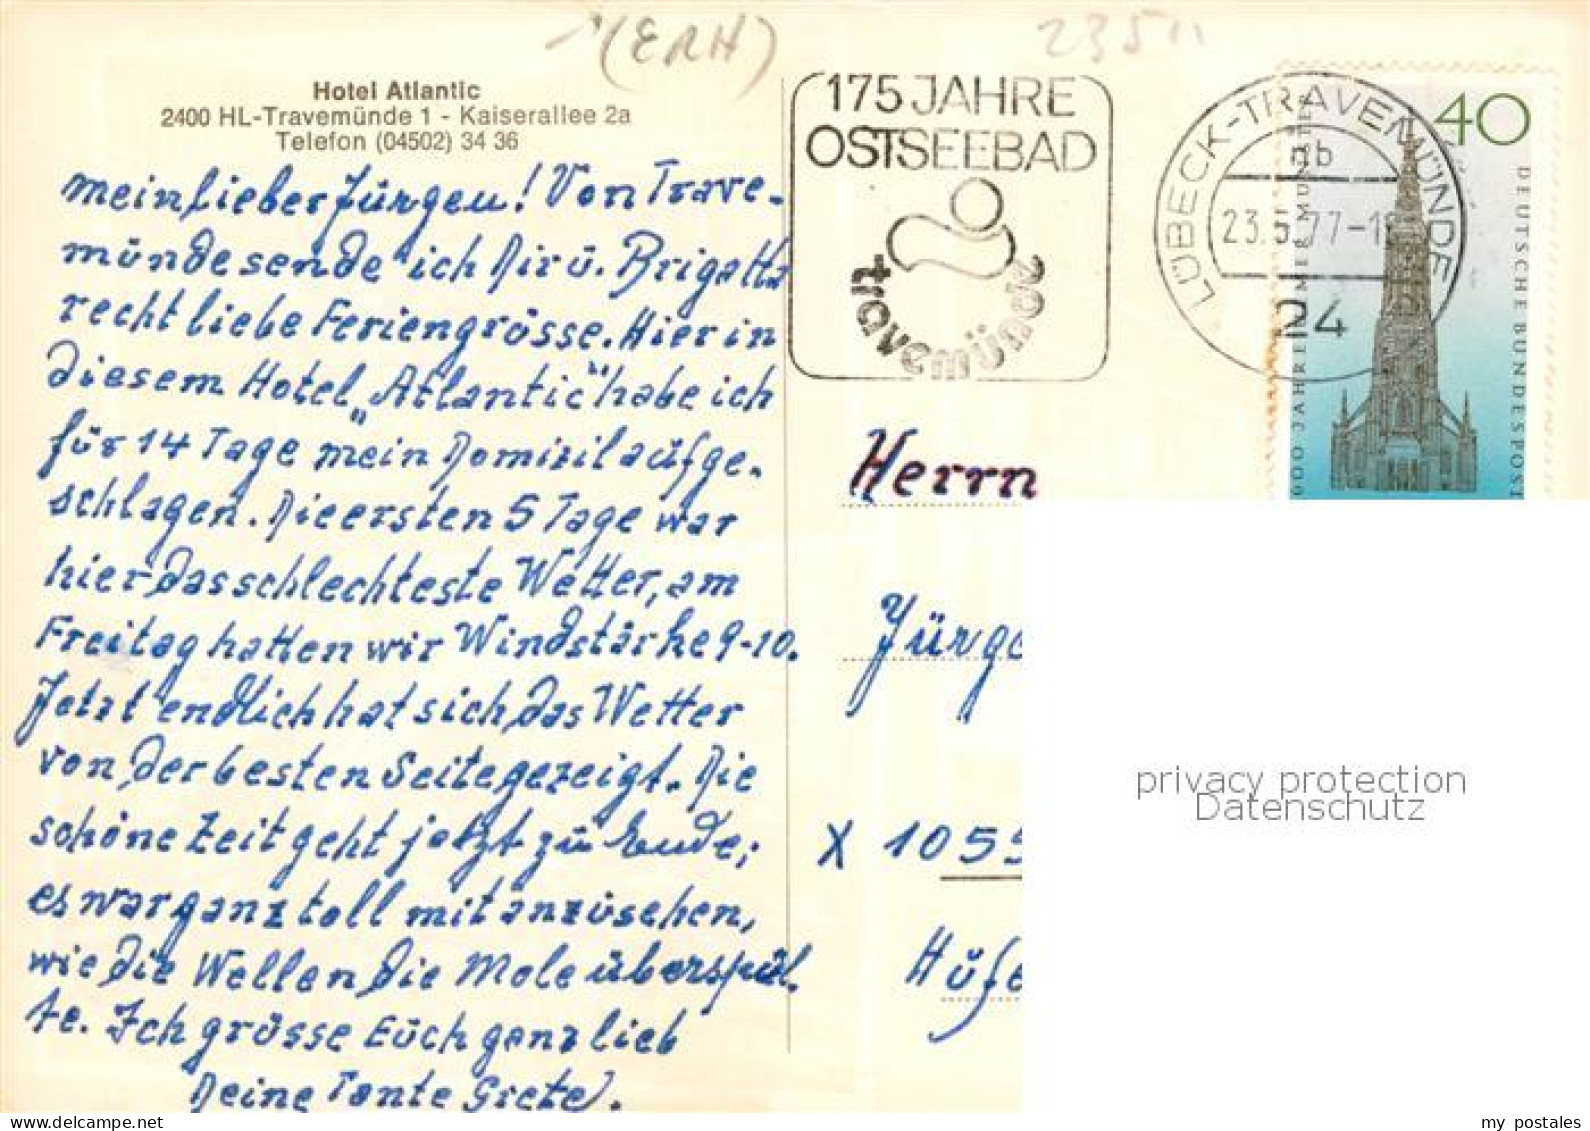 (ERH)
235
Hotel Atlantic
2400 HL-Travemünde 1 - Kaiserallee 2a
Telefon (04502) 34 36
mein lieber Jürgen! Von Trave-
münde sende ich Dir ü. Brigatta
recht liebe Feriengrösse. Hier in
diesem Hotel „Atlantic" habe ich
für 14 Tage mein Domizil aüfge-
schlagen. Die ersten 5 Tage war
hier das schlechteste Wetter, am
Freitag hatten wir Windstärke 9-10.
Jetzt endlich hat sich das Wetter
von der besten Seite gezeigt. Die
schöne Zeit geht jetzt zü Ende;
es war ganz toll mit anzüsehen,
wie die Wellen die Mole überspül.
te. Ich grüsse Eüch ganz lieb
Deine Tante Grete.
175 JAHRE
OSTSEEBAD
travemünde
LÜBECK-TRAVEMÜNDE
mb
23.5.77-1
24
40
DEUTSCHE BUNDESPOST
600 JAHRE ULMER MÜNSTER
Herrn
Jürge
X 1055
Hüfe
privacy protection
Datenschutz
my postales